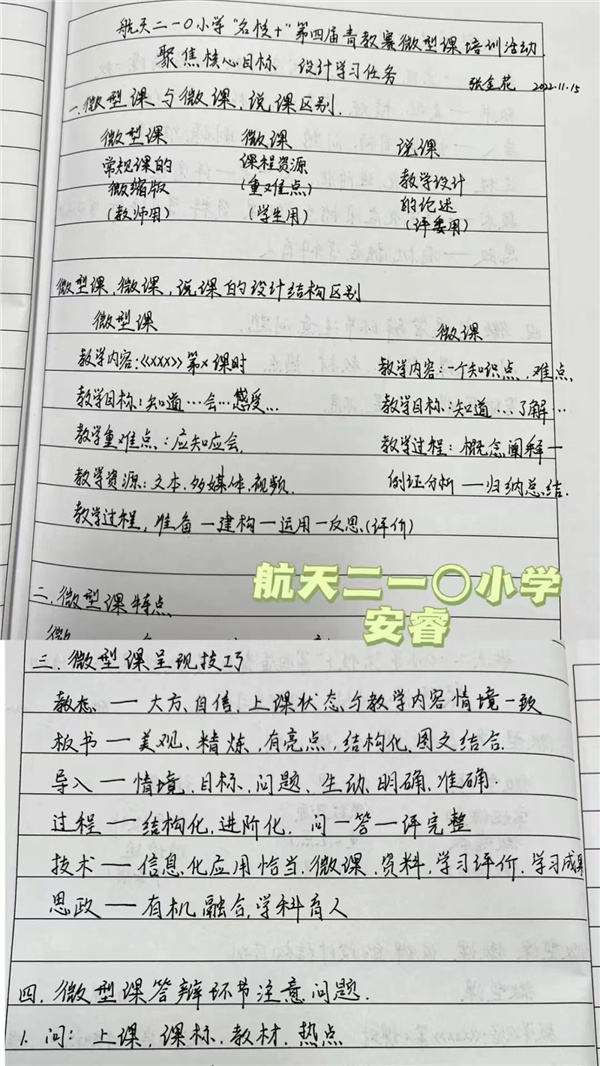 航天二一〇小学“名校+”第四届青教赛微型课培训活动
聚焦核心目标 设计学习任务 张金花 2022.11.15
一.微型课与微课,说课区别.
微型课 微课 说课
常规课的 课程资源 教学设计
微缩版 (重难点) 的论述
(教师用) (学生用) (评委用)
微型课,微课,说课的设计结构区别
微型课 微课
教学内容:《xxx》第x课时 教学内容:一个知识点,难点,
教学目标:知道……会……感受… 教学目标:知道…了解…
教学重难点:应知应会. 教学过程:概念阐释—
教学资源:文本.多媒体.视频. 例证分析—归纳总结.
教学过程,准备—建构—运用—反思(评价)
二.微型课特点
航天二一〇小学
安睿
三.微型课呈现技巧
教态—大方、自信,上课状态与教学内容情境一致
板书—美观、精炼,有亮点,结构化,图文结合.
导入—情境.目标.问题、生动.明确.准确.
过程—结构化,进阶化. 问—答—评完整
技术—信息化应用恰当.微课.资料,学习评价.学习成果
思政—有机融合,学科育人
四.微型课答辩环节注意问题.
1.问:上课,课标.教材.热点